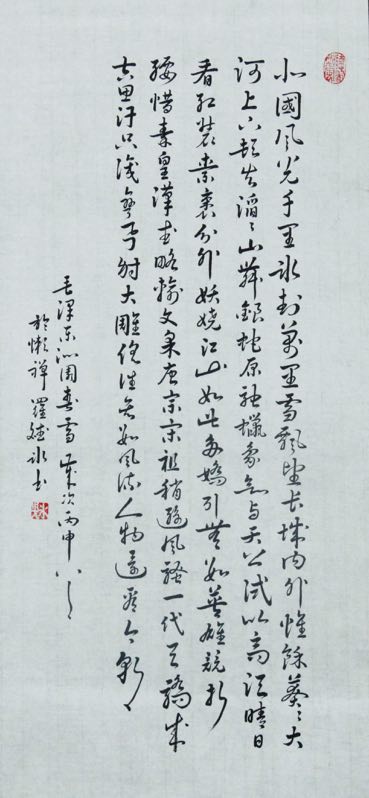 北國風光千里冰封萬里雪飄望長城內外惟餘莽々大
河上下頓失滔々山舞銀蛇原馳蠟象欲与天公試比高須晴日
看紅裝素裹分外妖嬈江山如此多嬌引無數英雄競折
腰惜秦皇漢武略輸文采唐宗宋祖稍遜風騷一代天驕成
吉思汗只識彎弓射大雕俱往矣數風流人物還看今朝
毛澤東沁園春雪歲次丙申八
於懶禪羅冰書